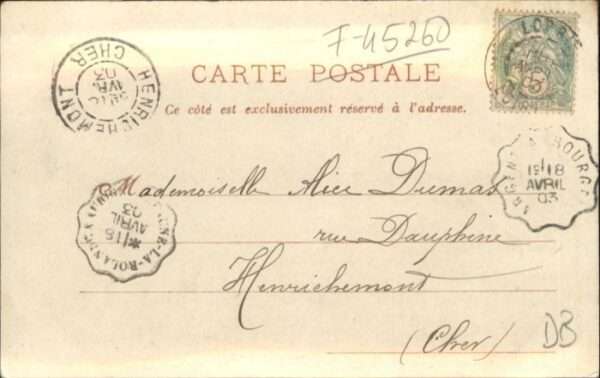 F-45260
CARTE POSTALE
Ce côté est exclusivement réservé à l'adresse.
HENRICHEMONT
CHER
AVRIL
03
LORRIS
5
BOURGES
1E/18
AVRIL
03
LA-ROLANDE
*/18
AVRIL
03
Mademoiselle Alice Dumas
rue Dauphine
Henrichemont
(Cher)
DB